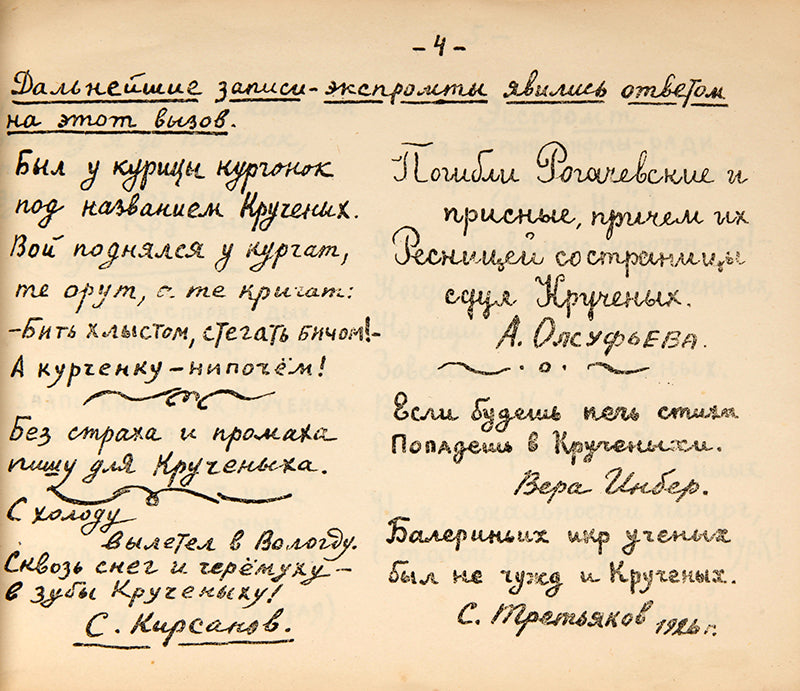 - 4 -
Дальнейшие записи-экспромты явились ответом
на этот вызов.
Был у курицы курчонок
под названием Крученых.
Вой поднялся у курчат,
те орут, а те кричат:
-Бить хлыстом, стегать бичом!-
А курченку - нипочём!
Без страха и промаха
пишу для Крученыха.
С холоду
вылетел в Вологду.
Сквозь снег и черёмуху -
в зубы Крученыху!
С. Кирсанов.
Погибли Рогачевские и
присные, причем их
Ресницей со страницы
сдул Крученых.
А. Олсуфьева.
Если будешь печь стихи
Попадешь в Крученыхи.
Вера Инбер.
Балериньих икр ученых
был не чужд и Крученых.
С. Третьяков 1926 г.